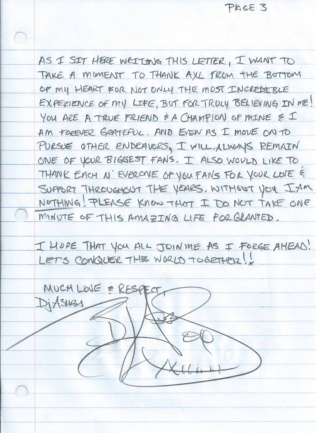 PAGE 3
AS I SIT HERE WRITING THIS LETTER, I WANT TO
TAKE A MOMENT TO THANK AXL FROM THE BOTTOM
OF MY HEART FOR NOT ONLY THE MOST INCREDIBLE
EXPERIENCE OF MY LIFE, BUT FOR TRULY BELIEVING IN ME!
YOU ARE A TRUE FRIEND & A CHAMPION OF MINE & I
AM FOREVER GRATEFUL. AND EVEN AS I MOVE ON TO
PURSUE OTHER ENDEAVORS, I WILL ALWAYS REMAIN
ONE OF YOUR BIGGEST FANS. I ALSO WOULD LIKE TO
THANK EACH N' EVERONE OF YOU FANS FOR YOUR LOVE &
SUPPORT THROUGHOUT THE YEARS. WITHOUT YOU I AM
NOTHING! PLEASE KNOW THAT I DO NOT TAKE ONE
MINUTE OF THIS AMAZING LIFE FOR GRANTED.
I HOPE THAT YOU ALL JOIN ME AS I FORGE AHEAD!
LET'S CONQUER THE WORLD TOGETHER!!
MUCH LOVE & RESPECT,
Dj ASHBA